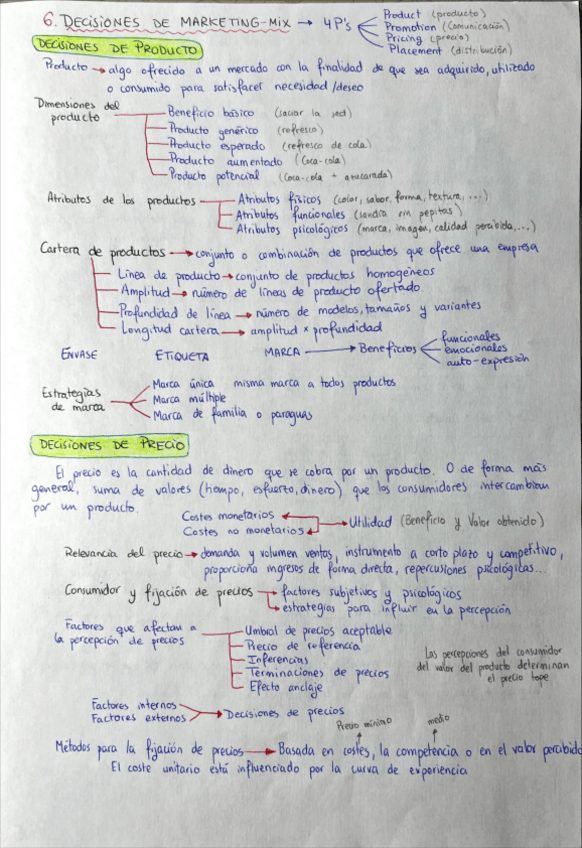 6. DECISIONES DE MARKETING-MIX → 4P's
Product (producto)
Promotion (comunicación)
Pricing (precio)
Placement (distribución)
DECISIONES DE PRODUCTO
Producto → algo ofrecido a un mercado con la finalidad de que sea adquirido, utilizado
o consumido para satisfacer necesidad/deseo
Dimensiones del
producto
Beneficio básico (saciar la sed)
Producto genérico (refresco)
Producto esperado (refresco de cola)
Producto aumentado (Coca-cola)
Producto potencial (Coca-cola + azucarada)
Atributos de los productos
Atributos físicos (color, sabor, forma, textura, ...)
Atributos funcionales (sandía sin pepitas)
Atributos psicológicos (marca, imagen, calidad percibida, ...)
Cartera de productos → conjunto o combinación de productos que ofrece una empresa
Línea de producto → conjunto de productos homogéneos
Amplitud → número de líneas de producto ofertado
Profundidad de línea → número de modelos, tamaños y variantes
Longitud cartera → amplitud × profundidad
ENVASE ETIQUETA MARCA → Beneficios
funcionales
emocionales
auto-expresión
Estrategias
de marca
Marca única misma marca a todos productos
Marca múltiple
Marca de familia o paraguas
DECISIONES DE PRECIO
El precio es la cantidad de dinero que se cobra por un producto. O de forma más
general, suma de valores (tiempo, esfuerzo, dinero) que los consumidores intercambian
por un producto.
Costes monetarios
Costes no monetarios
Utilidad (Beneficio y Valor obtenido)
Relevancia del precio → demanda y volumen ventas, instrumento a corto plazo y competitivo,
proporciona ingresos de forma directa, repercusiones psicológicas...
Consumidor y fijación de precios → factores subjetivos y psicológicos
→ estrategias para influir en la percepción
Factores que afectan a
la percepción de precios
Umbral de precios aceptable
Precio de referencia
Inferencias
Terminaciones de precios
Efecto anclaje
Las percepciones del consumidor
del valor del producto determinan
el precio tope
Factores internos
Factores externos
→ Decisiones de precios
Precio mínimo
medio
Métodos para la fijación de precios → Basada en costes, la competencia o en el valor percibido
El coste unitario está influenciado por la curva de experiencia